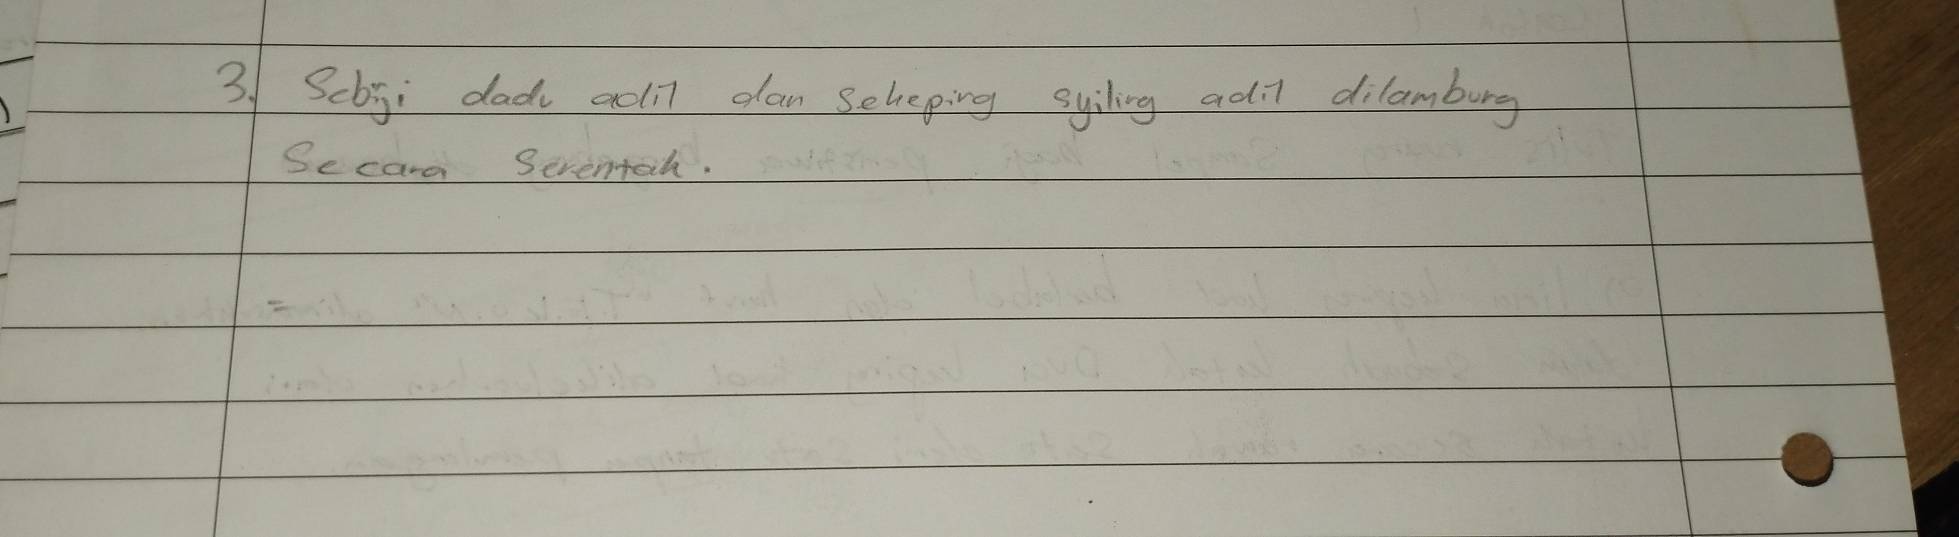 3. Sebiji dadu adil dan sekeping syiling adil dilambung
Secara Serentak.
=